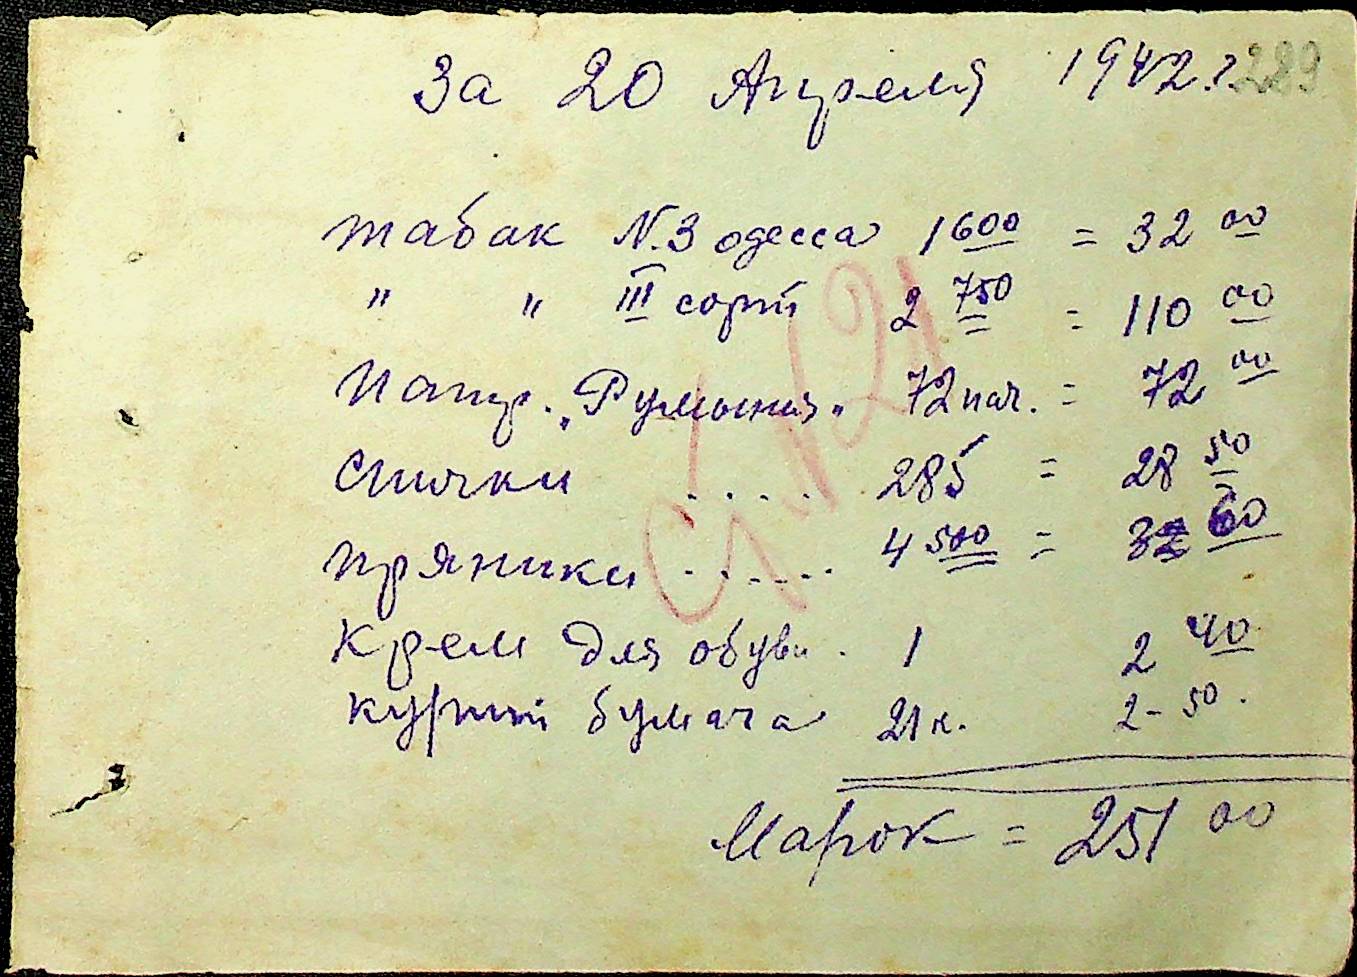 За 20 Апреля 1942 г. 289
табак N.3 одесса 1 600 = 32 00
" " III сорт 2 750 = 110 00
Папир. „Румыния" 72 пач. = 72 00
Спички ..... 285 = 28 50
пряники ...... 4 500 = 60
Крем для обуви . 1 2 40
бумага 21 к. 2-50.
Марок = 251 00